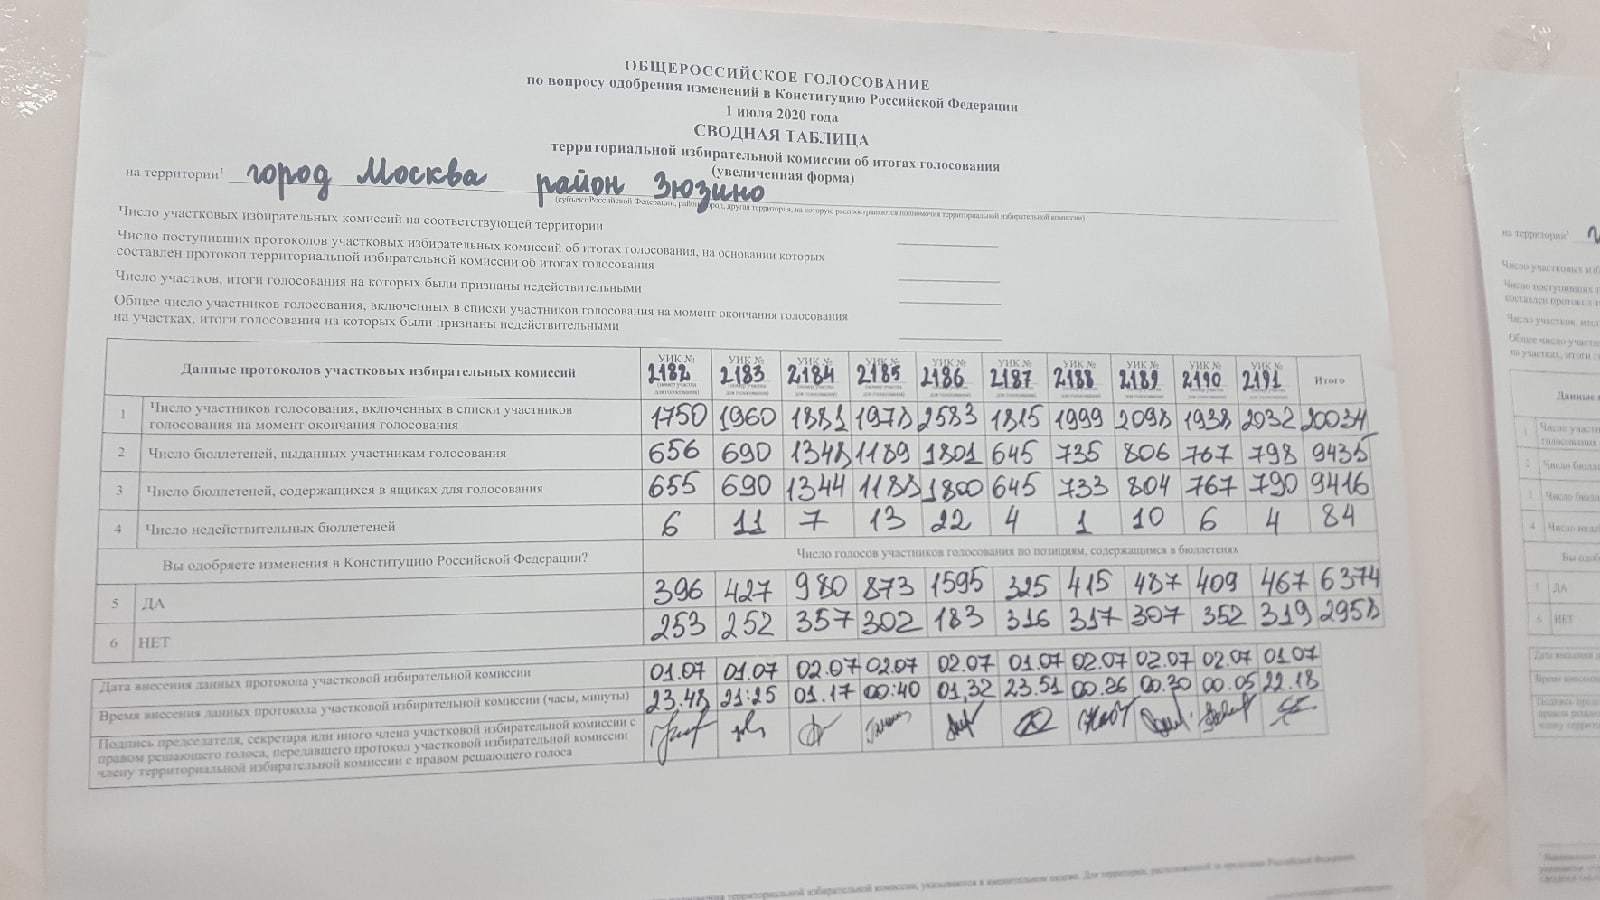 ОБЩЕРОССИЙСКОЕ ГОЛОСОВАНИЕ
по вопросу одобрения изменений в Конституцию Российской Федерации
1 июля 2020 года
СВОДНАЯ ТАБЛИЦА
территориальной избирательной комиссии об итогах голосования
(увеличенная форма)
на территории¹ город Москва район Зюзино
Число участковых избирательных комиссий на соответствующей территории
Число поступивших протоколов участковых избирательных комиссий об итогах голосования, на основании которых
составлен протокол территориальной избирательной комиссии об итогах голосования
Число участков, итоги голосования на которых были признаны недействительными
Общее число участников голосования, включенных в списки участников голосования на момент окончания голосования
на участках, итоги голосования на которых были признаны недействительными
Данные протоколов участковых избирательных комиссий УИК № 2182 УИК № 2183 УИК № 2184 УИК № 2185 УИК № 2186 УИК № 2187 УИК № 2188 УИК № 2189 УИК № 2190 УИК № 2191 Итого
1 Число участников голосования, включенных в списки участников
голосования на момент окончания голосования 1750 1960 1881 1978 2583 1815 1999 2098 1938 2032 20034
2 Число бюллетеней, выданных участникам голосования 656 690 1348 1189 1801 645 735 806 767 798 9435
3 Число бюллетеней, содержащихся в ящиках для голосования 655 690 1344 1188 1800 645 733 804 767 790 9416
4 Число недействительных бюллетеней 6 11 7 13 22 4 1 10 6 4 84
Вы одобряете изменения в Конституцию Российской Федерации? Число голосов участников голосования по позициям, содержащимся в бюллетенях
5 ДА 396 427 980 873 1595 325 415 487 409 467 6374
6 НЕТ 253 252 357 302 183 316 317 307 352 319 2958
Дата внесения данных протокола участковой избирательной комиссии 01.07 01.07 02.07 02.07 02.07 01.07 02.07 02.07 02.07 01.07
Время внесения данных протокола участковой избирательной комиссии (часы, минуты) 23.48 21:25 01.17 00:40 01.32 23.51 00.26 00.30 00.05 22.18
Подпись председателя, секретаря или иного члена участковой избирательной комиссии с
правом решающего голоса, передавшего протокол участковой избирательной комиссии
члену территориальной избирательной комиссии с правом решающего голоса
на территории¹